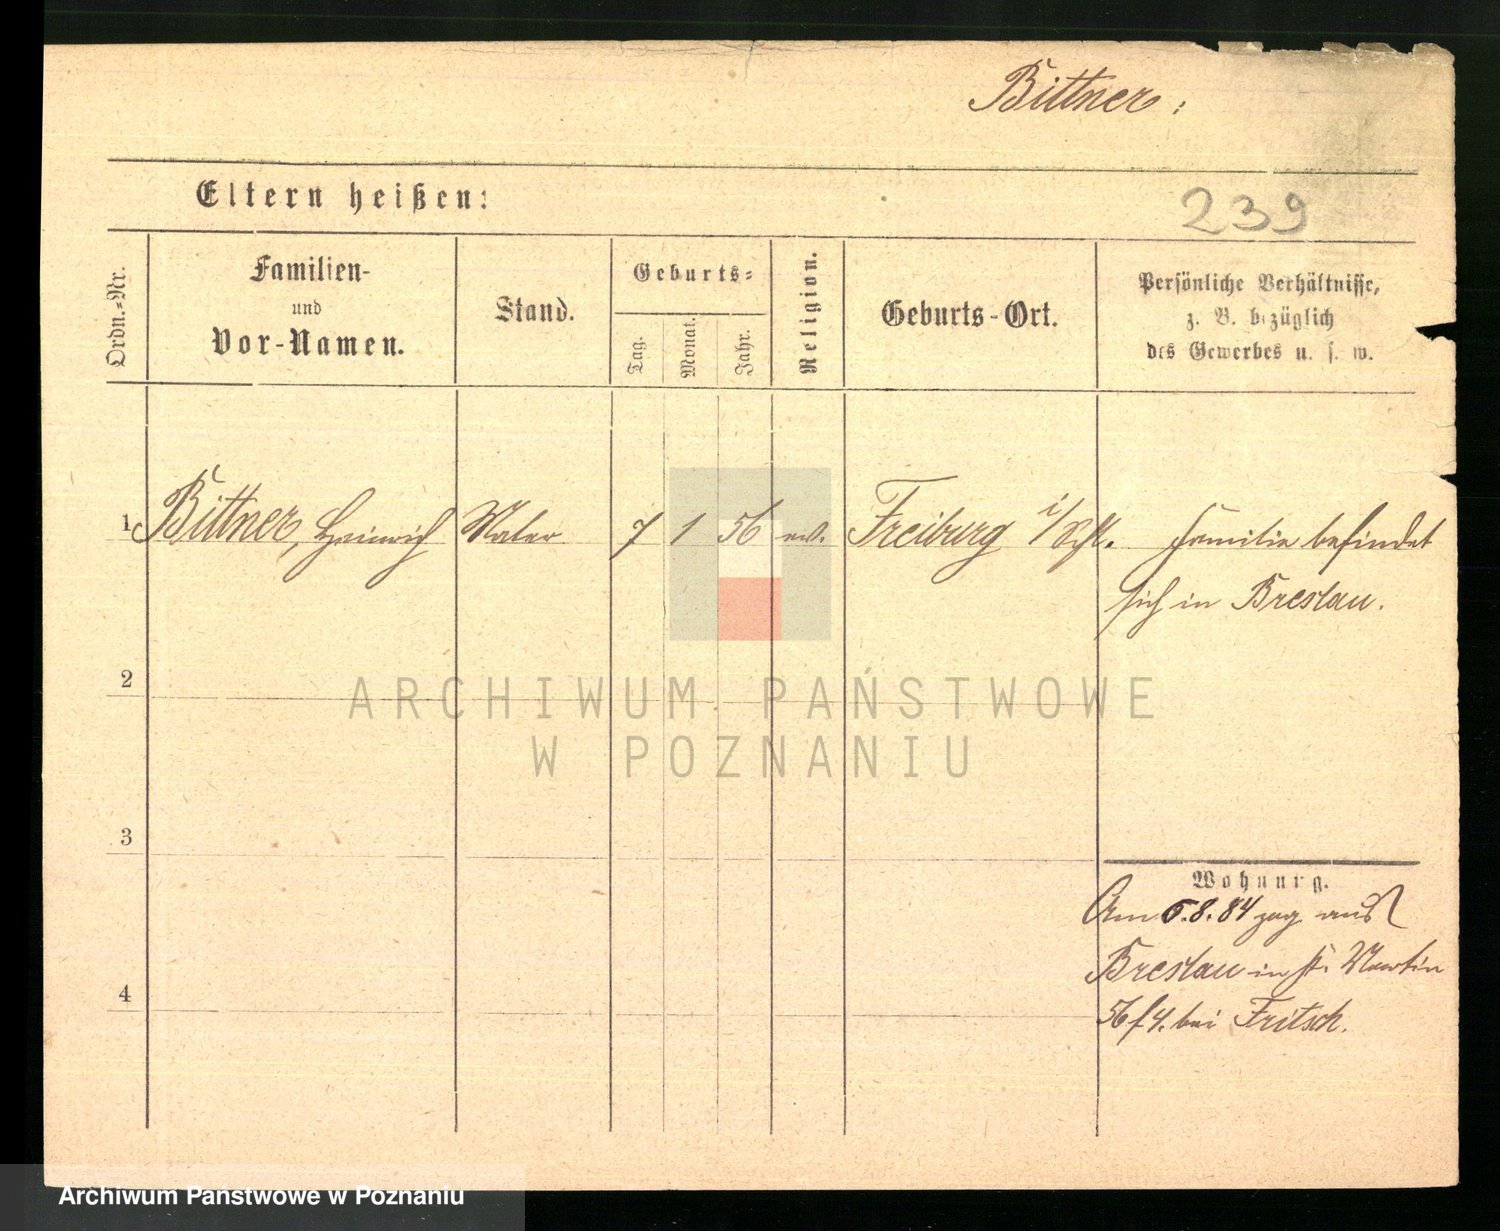 Bittner:
Eltern heißen:
239
Ordn.-Nr.
Familien-
und
Vor-Namen.
Stand.
Geburts-
Tag.
Monat.
Jahr.
Religion.
Geburts-Ort.
Persönliche Verhältnisse,
z. B. bezüglich
des Gewerbes u. s. w.
1 Bittner, Heinrich Maler 7 1 56 ev. Freiburg i/Schl. Familie befindet
sich in Breslau.
2
ARCHIWUM PAŃSTWOWE
W POZNANIU
3
Wohnung.
Am 6.8.84 zog aus
Breslau in St. Martin
4
bei Fritsch.
Archiwum Państwowe w Poznaniu